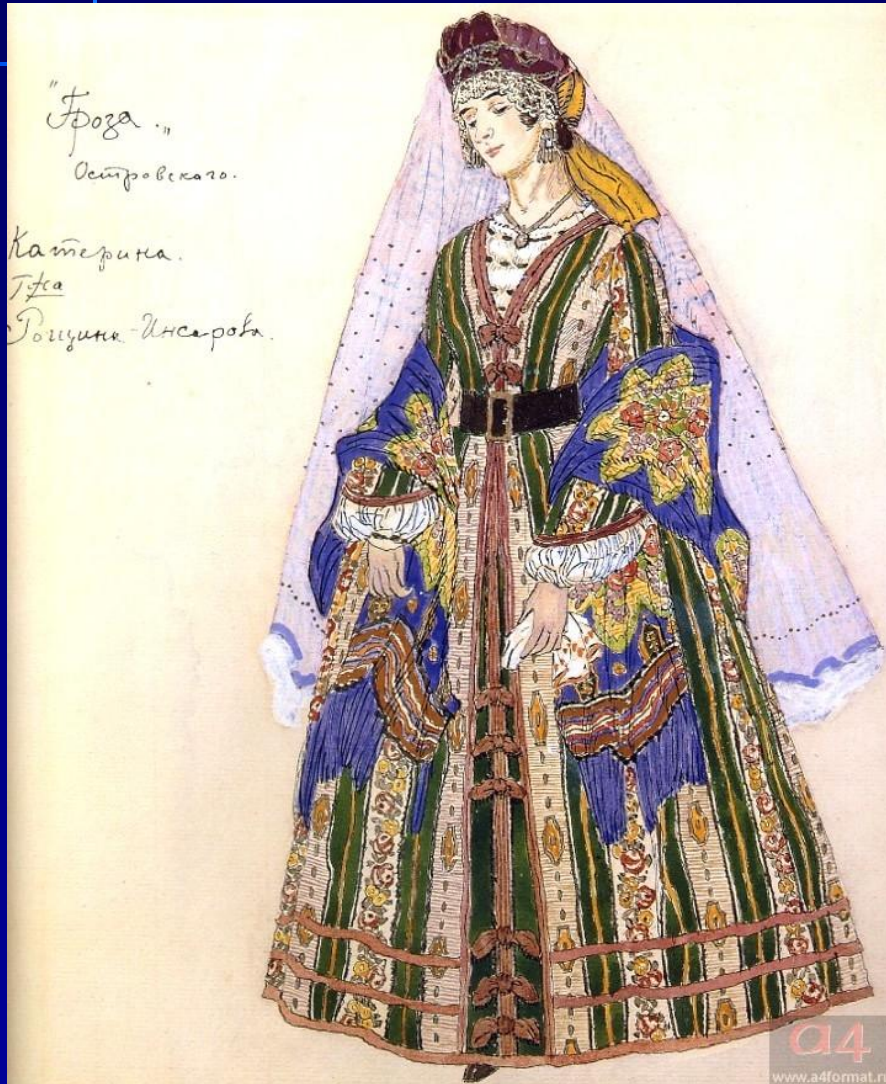 "Гроза."
Островскаго.
Катерина.
Гжа
Рощина-Инсарова.
a4
www.a4format.ru